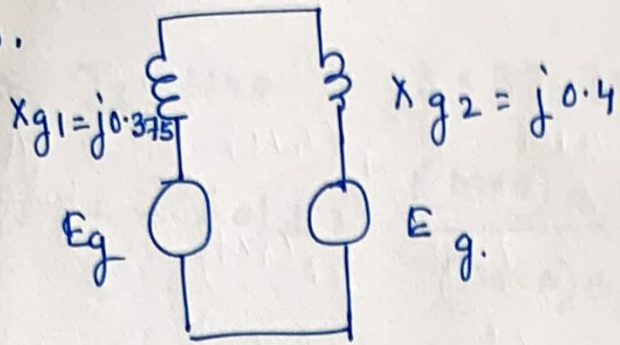 Xg1=j0.375
Xg2=j0.4
Eg
Eg.